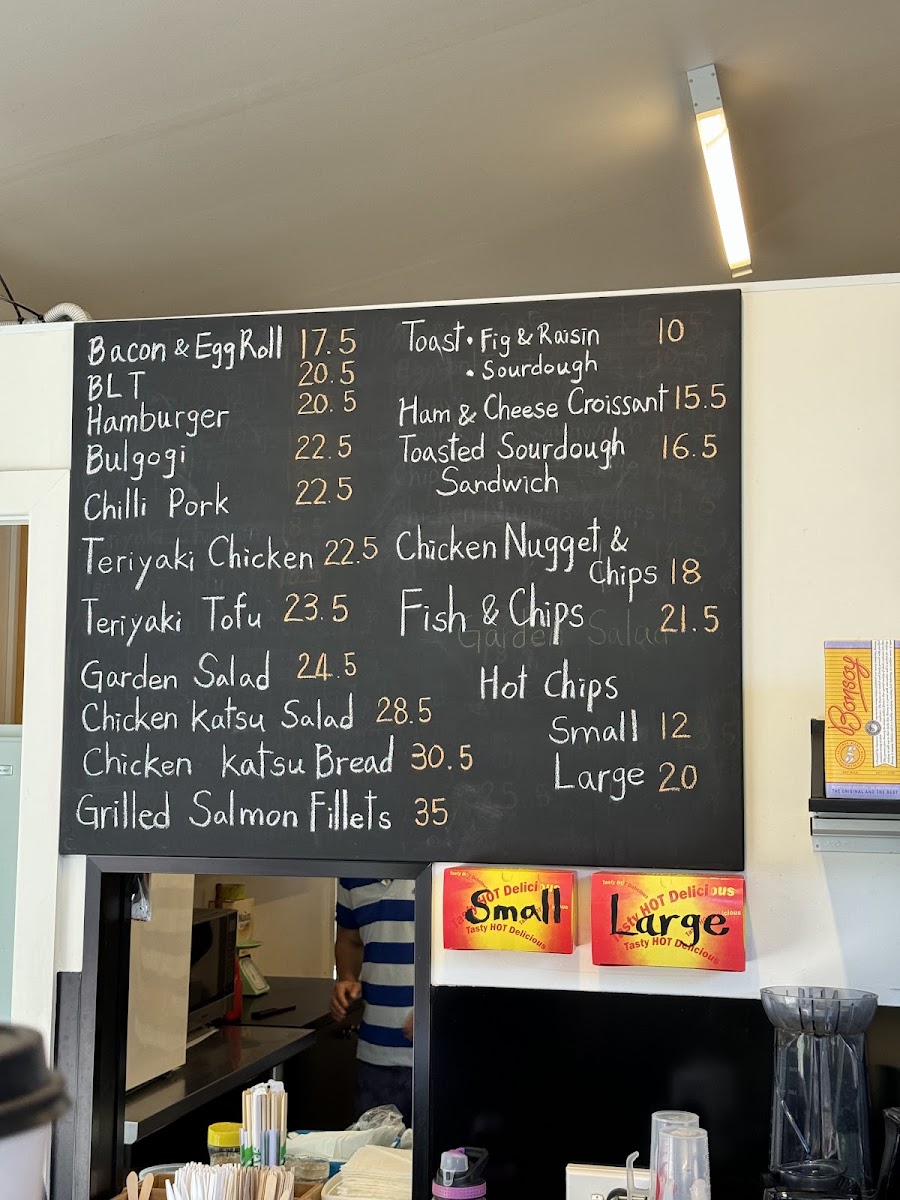 Bacon & Egg Roll 17.5
BLT 20.5
Hamburger 20.5
Bulgogi 22.5
Chilli Pork 22.5
Teriyaki Chicken 22.5
Teriyaki Tofu 23.5
Garden Salad 24.5
Chicken Katsu Salad 28.5
Chicken Katsu Bread 30.5
Grilled Salmon Fillets 35
Toast • Fig & Raisin 10
• Sourdough
Ham & Cheese Croissant 15.5
Toasted Sourdough 16.5
Sandwich
Chicken Nugget &
Chips 18
Fish & Chips 21.5
Garden Salad
Hot Chips
Small 12
Large 20
Small
HOT Delicious
Tasty HOT Delicious
Large
Tasty HOT Delicious
Tasty HOT Delicious
Bonsoy
THE ORIGINAL AND THE BEST